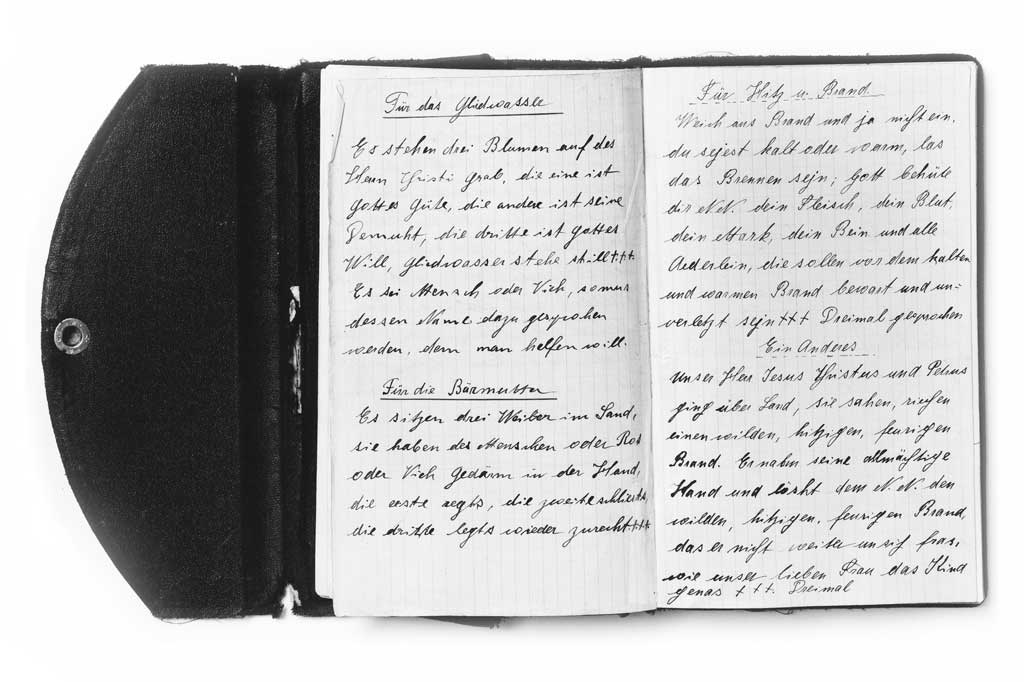 Für das Gliedwasser
Es stehen drei Blumen auf des
Herrn Christi Grab, die eine ist
Gottes Güte, die andere ist seine
Demuht, die dritte ist Gottes
Will, Gliedwasser stehe still +++
Es sei Mensch oder Vieh, so mus
dessen Name dazu gesprochen
werden, dem man helfen will.
Für die Bärmutter
Es sitzen drei Weiber im Sand,
sie haben des Menschen oder Ros
oder Vieh Gedärm in der Hand,
die erste regts, die zweite schliests,
die dritte legts wieder zurecht +++
Für Hitz u. Brand
Weich aus Brand und ja nicht ein,
du sejest kalt oder warm, las
das Brennen sejn; Gott behüte
dir N.N. dein Fleisch, dein Blut,
dein Mark, dein Bein und alle
Aederlein, die sollen vor dem kalten
und warmen Brand bewart und un=
verletzt sejn +++ Dreimal gesprochen
Ein Anderes
Unser Herr Jesus Christus und Petrus
ging über Land, sie sahen, riechen
einen wilden, hitzigen, feurigen
Brand. Er nahm seine allmächtige
Hand und löscht dem N.N. den
wilden, hitzigen, feurigen Brand,
das er nicht weiter um sich fras,
wie unser lieben Frau das Kind
genas + + +. Dreimal